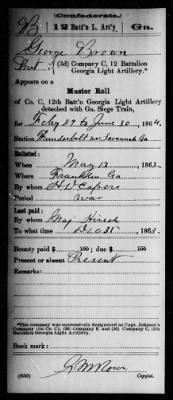 Confederate.
B 12 Batt'n L. Art'y. Ga.
George Brown
Pvt., (3d) Company C, 12 Battalion
Georgia Light Artillery.*
Appears on a
Master Roll
of Co. C, 12th Batt'n Georgia Light Artillery
detached with Ga. Siege Train,
for Feby 29 to June 30, 1864.
Station Thunderbolt nr Savannah Ga
Enlisted:
When May 13, 1862.
Where Franklin Ga
By whom H D Capers
Period war
Last paid:
By whom Maj Hirsch
To what time Dec 31, 1863.
Bounty paid $ 100; due $ 100
Present or absent Present
Remarks:
*This company was successively designated as Capt. Johnson's
Company, 12th Battalion
Georgia Light Artillery.
Book mark:
(650) Copyist.